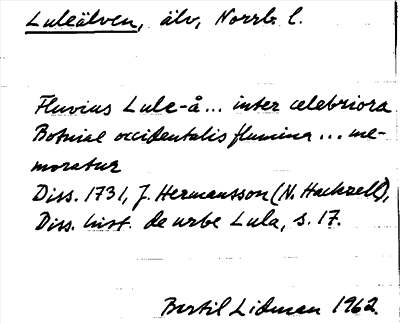 Luleälven, älv, Norrb. l.
Fluvius Lule-å... inter celebriora
Botniae occidentalis flumina... me-
moratur
Diss. 1731, J. Hermansson (N. Hackzell),
Diss. hist. de urbe Lula, s. 17.
Bertil Lidman 1962.